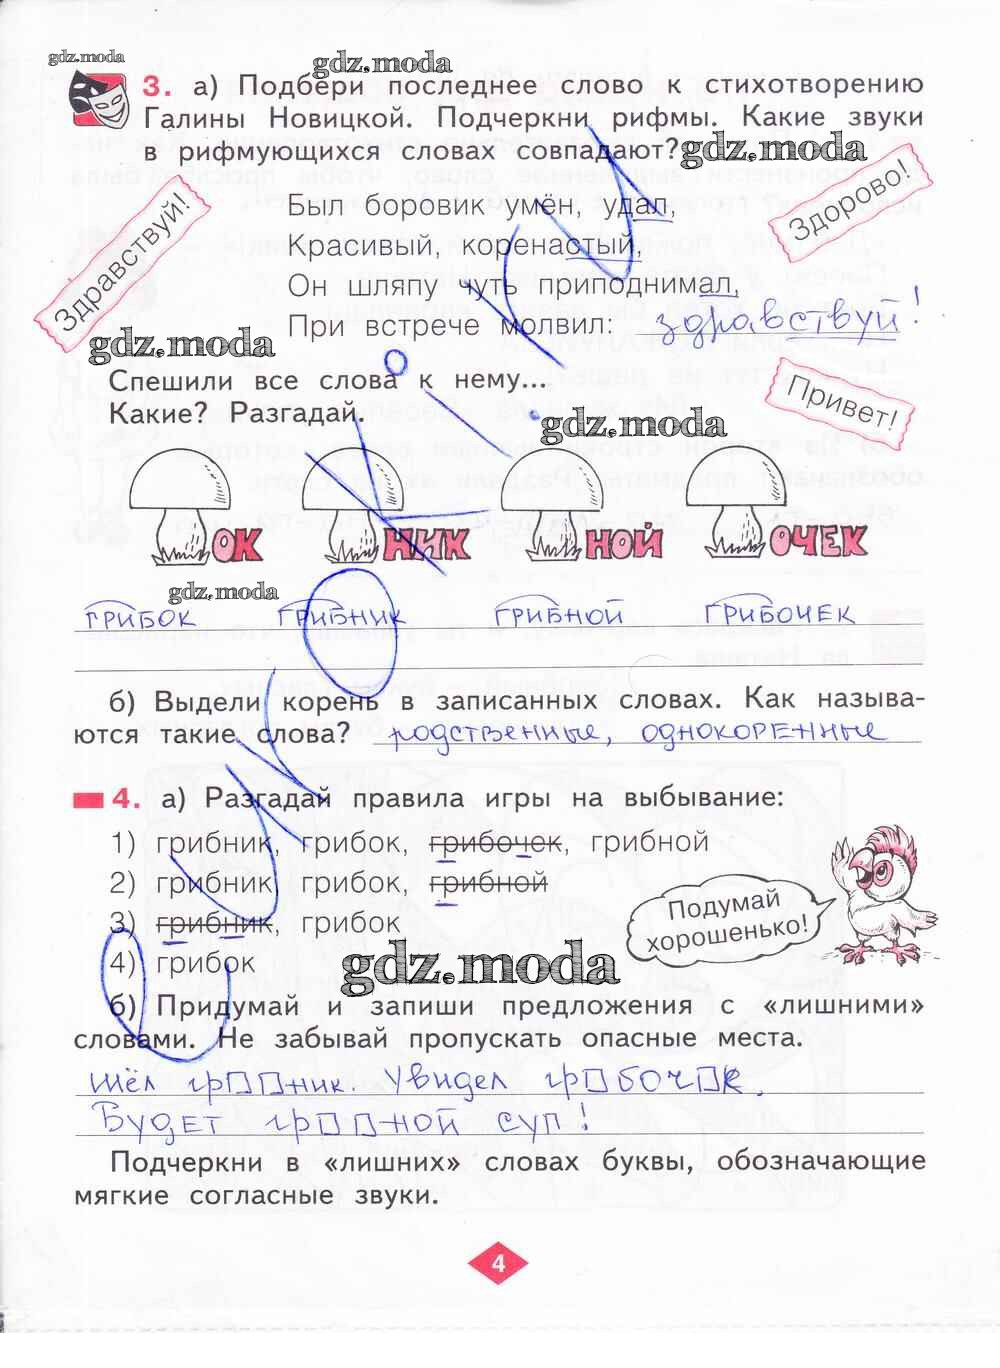 gdz.moda
gdz.moda
3. а) Подбери последнее слово к стихотворению
Галины Новицкой. Подчеркни рифмы. Какие звуки
в рифмующихся словах совпадают?
gdz.moda
Здравствуй!
Здорово!
Был боровик умён, удал,
Красивый, коренастый,
Он шляпу чуть приподнимал,
При встрече молвил: здравствуй!
gdz.moda
Спешили все слова к нему...
Какие? Разгадай.
Привет!
gdz.moda
ОК НИК НОЙ ОЧЕК
gdz.moda
ГРИБОК ГРИБНИК ГРИБНОЙ ГРИБОЧЕК
б) Выдели корень в записанных словах. Как называ-
ются такие слова? родственные, однокоренные
4. а) Разгадай правила игры на выбывание:
1) грибник, грибок, грибочек, грибной
2) грибник, грибок, грибной
3) грибник, грибок
4) грибок
Подумай
хорошенько!
gdz.moda
б) Придумай и запиши предложения с «лишними»
словами. Не забывай пропускать опасные места.
Шёл гр□□ник. Увидел гр□боч□к.
Будет гр□□ной суп!
Подчеркни в «лишних» словах буквы, обозначающие
мягкие согласные звуки.
4